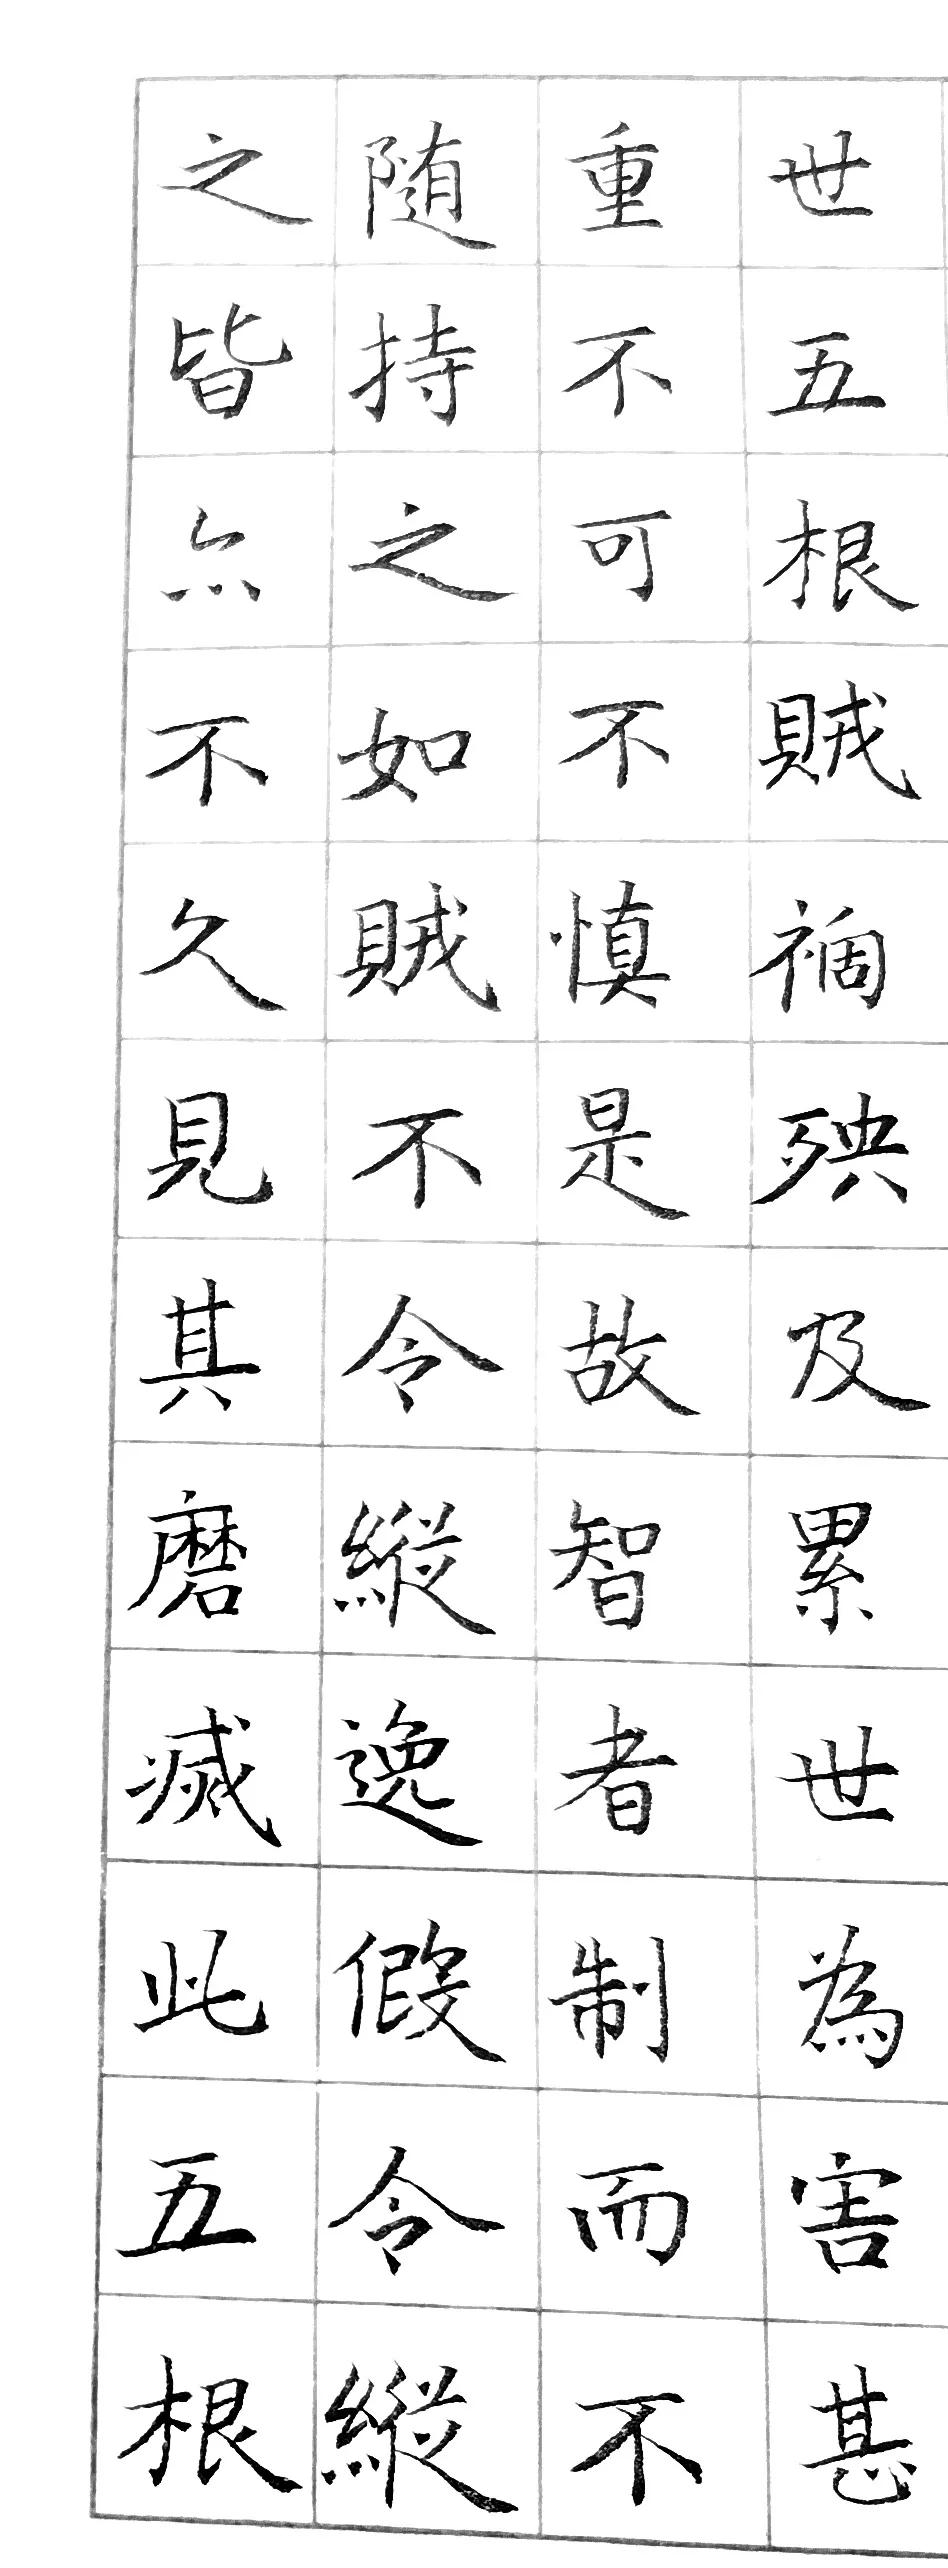 世五根賊禍殃及累世為害甚
重不可不慎是故智者制而不
随持之如賊不令縱逸假令縱
之皆亦不久見其磨滅此五根